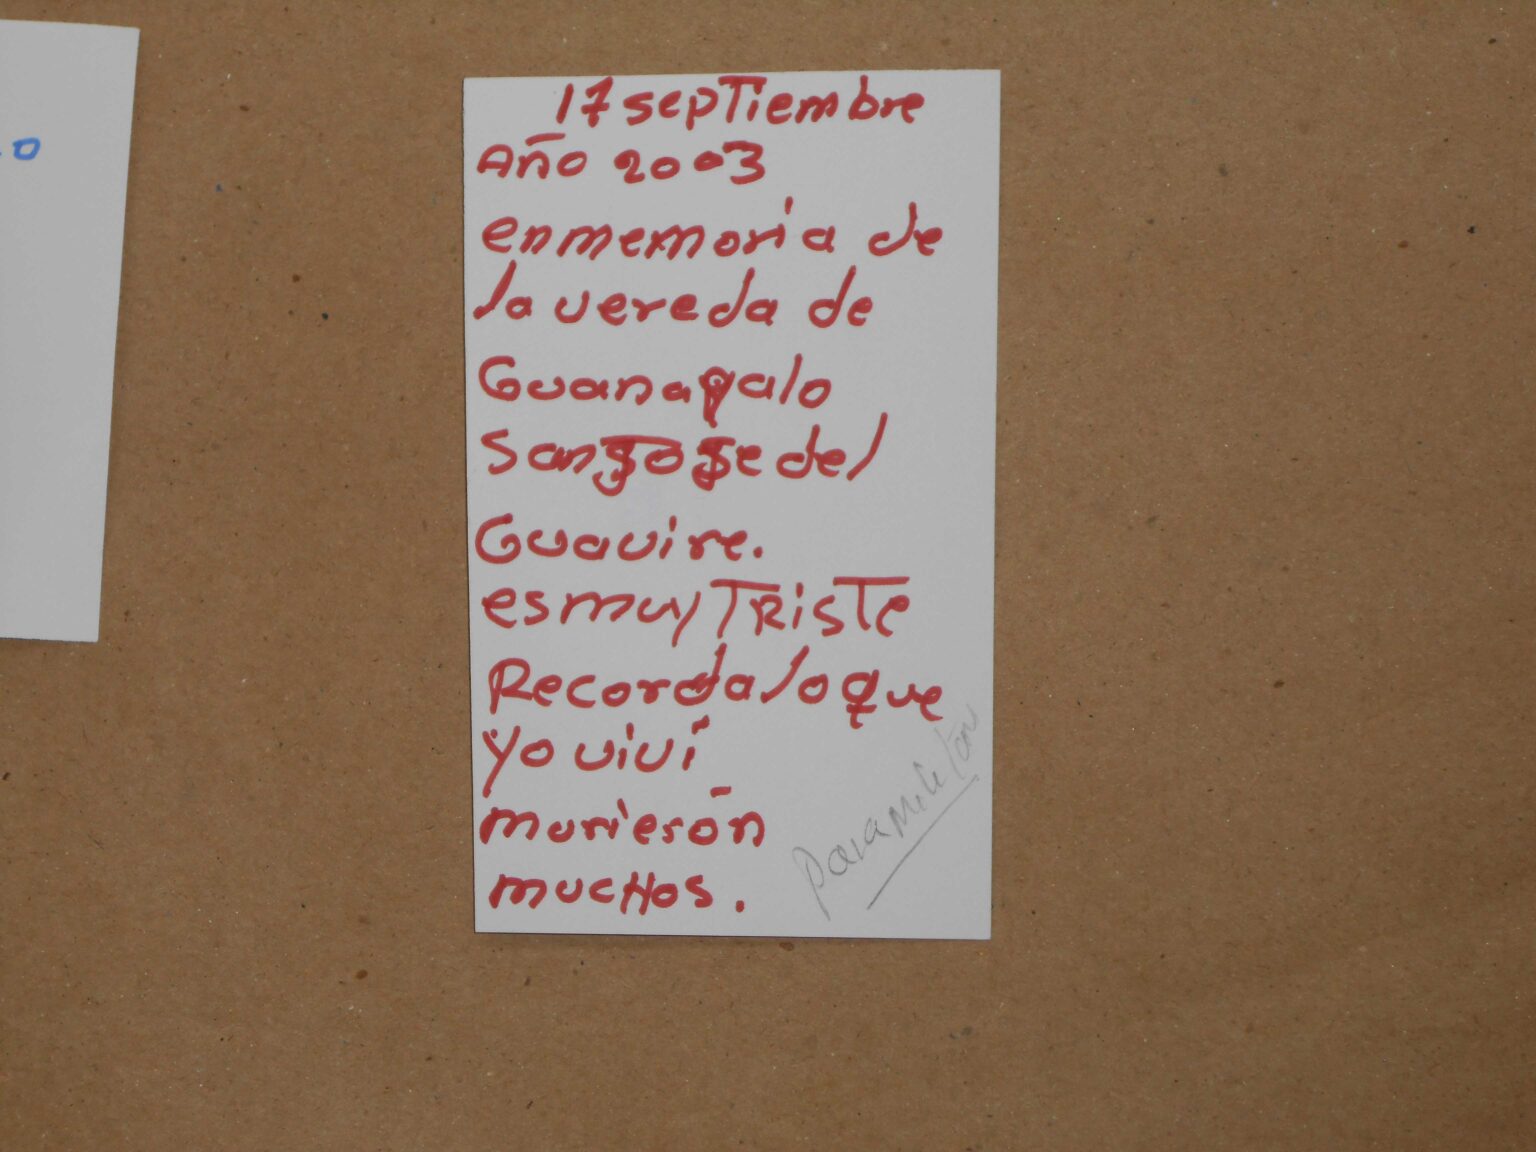 17 septiembre
Año 2003
en memoria de
la vereda de
Guanapalo
San Jose del
Guavire.
es muy TRISTE
Recorda lo que
yo viví
murierón
mucHos.
Paramilitar